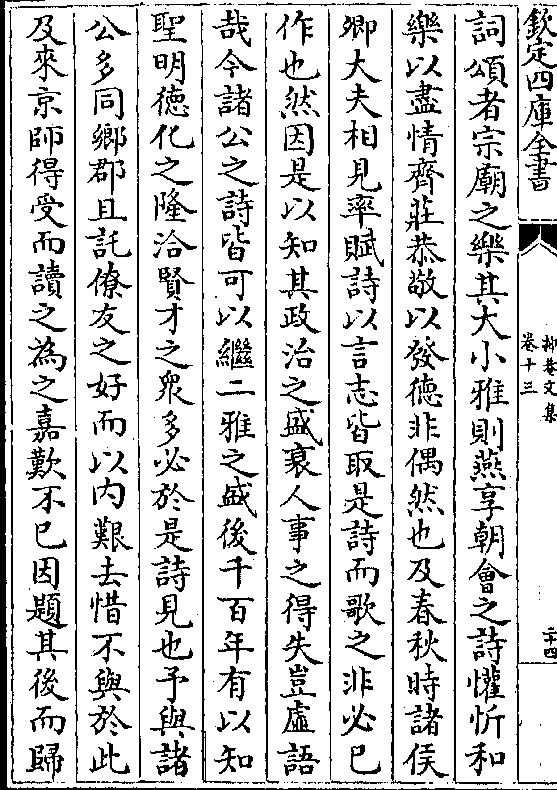 欽定四庫全書
抑菴文集
卷十三
二十四
詞頌者宗廟之樂其大小雅則燕享朝會之詩懽忻和
樂以盡情齊莊恭敬以發德非偶然也及春秋時諸侯
卿大夫相見率賦詩以言志皆取是詩而歌之非必已
作也然因是以知其政治之盛衰人事之得失豈虛語
哉今諸公之詩皆可以繼二雅之盛後千百年有以知
聖明德化之隆洽賢才之衆多必於是詩見也予與諸
公多同鄉郡且託僚友之好而以内艱去惜不與於此
及來京師得受而讀之為之嘉歎不已因題其後而歸